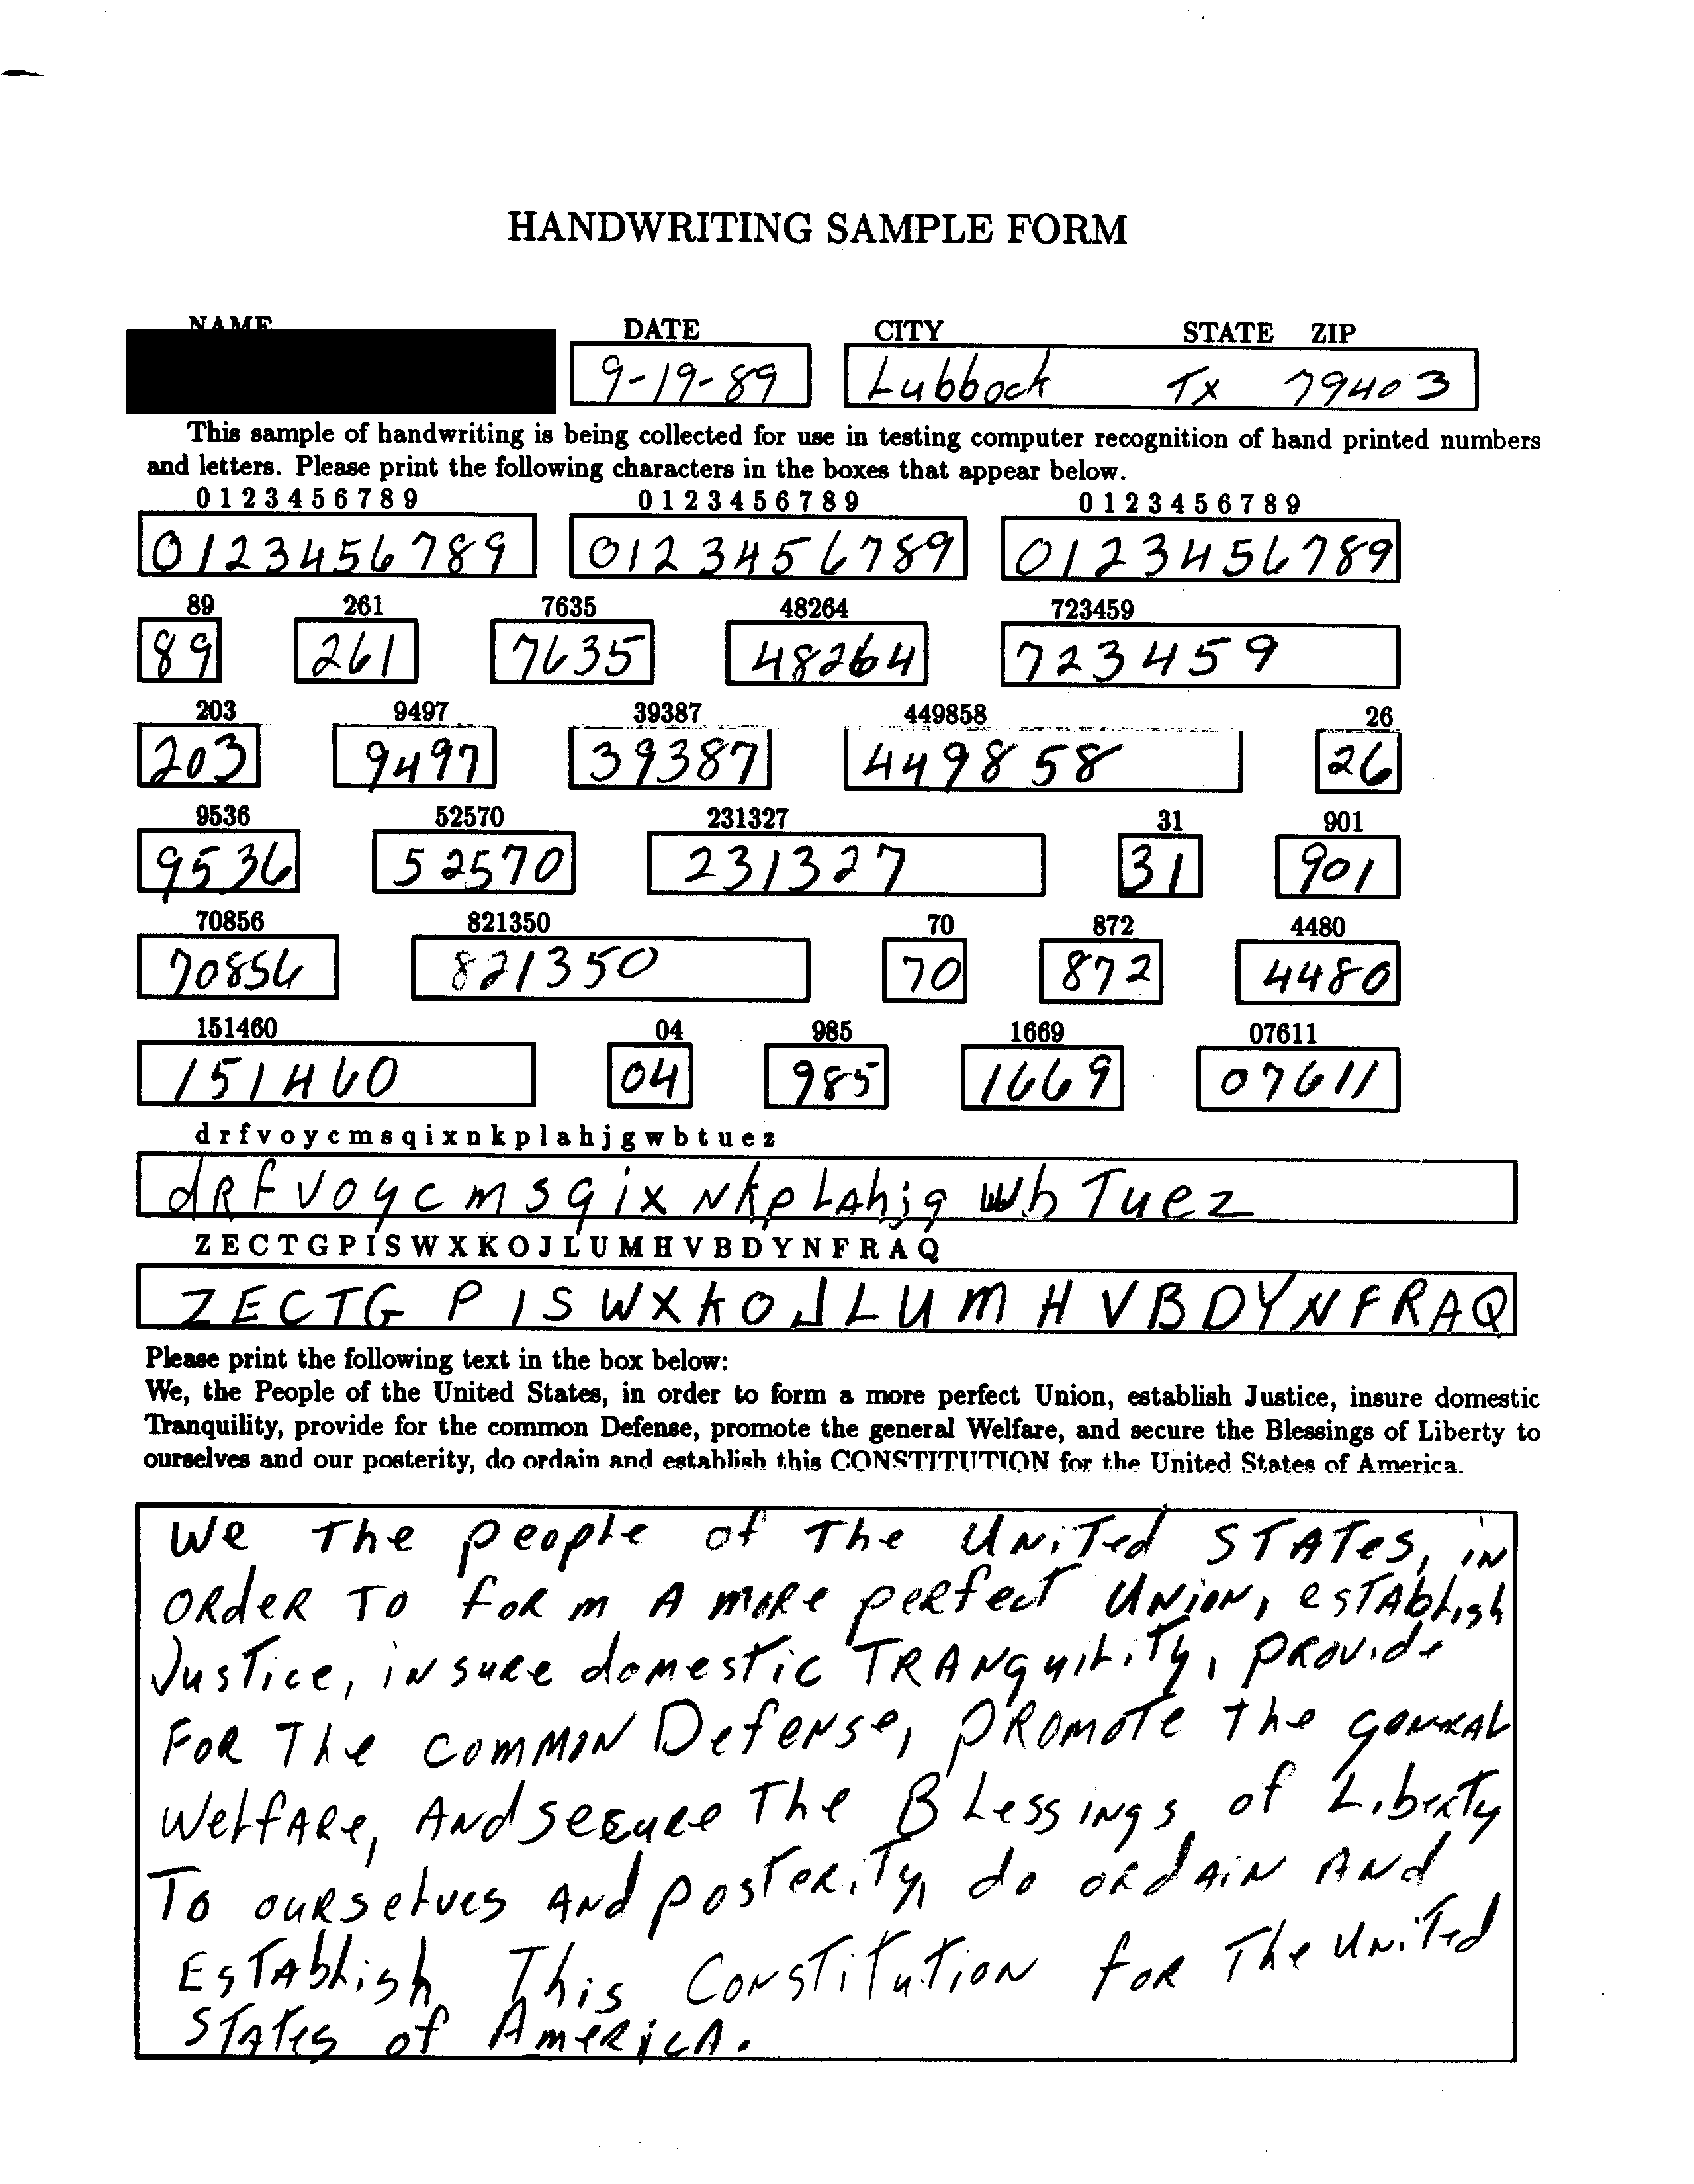 HANDWRITING SAMPLE FORM
NAME DATE CITY STATE ZIP
9-19-89 Lubbock Tx 79403
This sample of handwriting is being collected for use in testing computer recognition of hand printed numbers
and letters. Please print the following characters in the boxes that appear below.
0 1 2 3 4 5 6 7 8 9 0 1 2 3 4 5 6 7 8 9 0 1 2 3 4 5 6 7 8 9
0123456789 0123456789 0123456789
89 261 7635 48264 723459
89 261 7635 48264 723459
203 9497 39387 449858 26
203 9497 39387 449858 26
9536 52570 231327 31 901
9536 52570 231327 31 901
70856 821350 70 872 4480
70856 821350 70 872 4480
151460 04 985 1669 07611
151460 04 985 1669 07611
d r f v o y c m s q i x n k p l a h j g w b t u e z
dRFVOYCMSqix NkpLAhjg wb Tuez
Z E C T G P I S W X K O J L U M H V B D Y N F R A Q
ZECTG PISWXKOJLUMHVBDYNFRAQ
Please print the following text in the box below:
We, the People of the United States, in order to form a more perfect Union, establish Justice, insure domestic
Tranquility, provide for the common Defense, promote the general Welfare, and secure the Blessings of Liberty to
ourselves and our posterity, do ordain and establish this CONSTITUTION for the United States of America.
We The people of The UNiTed STATes, iN
ORdeR TO foR m A moRe peRfecT UNioN, esTAbLish
JusTice, iNsuRe domesTic TRANquiLiTy, pRovide
FoR The commoN DefeNse, pRomoTe the geNeRAL
WeLfARe, ANd secuRe The BLessiNgs of LibeRTy
To ouRseLves ANd posTeRiTy, do oRdAiN ANd
EsTAbLish This CoNsTiTuTioN foR The UNiTed
STATes of AmeRicA.